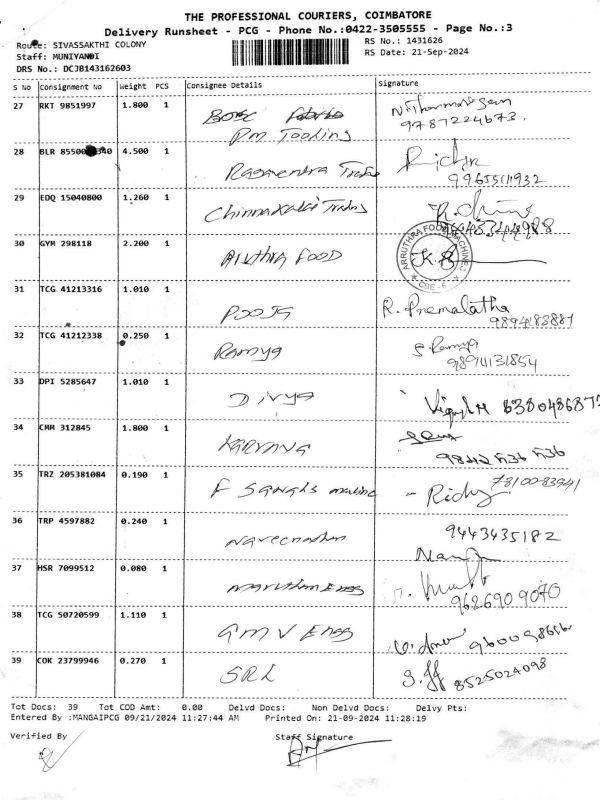 THE PROFESSIONAL COURIERS, COIMBATORE
Delivery Runsheet - PCG - Phone No.:0422-3505555 - Page No.:3
Route: SIVASSAKTHI COLONY
RS No.: 1431626
Staff: MUNIYANDI
RS Date: 21-Sep-2024
DRS No.: DCJB143162603
S No Consignment No Weight PCS Consignee Details Signature
27 RKT 9851997 1.800 1
Pm Tooling
9787224673.
28 BLR 8550 340 4.500 1
Ragavendra
9965511932
29 EDQ 15040800 1.260 1
30 GYM 298118 2.200 1 FOOD
ARRUTHRA FOOD MACHINES
CBE-6
31 TCG 41213316 1.010 1 POOJA R. Premalatha
9894183887
32 TCG 41212338 0.250 1 Ramya S. Ramya
33 DPI 5285647 1.010 1 Divya
34 CMM 312845 1.800 1
9842 536 536
35 TRZ 205381084 0.190 1 78100-83941
36 TRP 4597882 0.240 1 9443435182
37 HSR 7099512 0.080 1
9626909070
38 TCG 50720599 1.110 1 GMV Engg
39 COK 23799946 0.270 1 SRL 8525024098
Tot Docs: 39 Tot COD Amt: 0.00 Delvd Docs: Non Delvd Docs: Delvy Pts:
Entered By :MANGAIPCG 09/21/2024 11:27:44 AM Printed On: 21-09-2024 11:28:19
Verified By Staff Signature